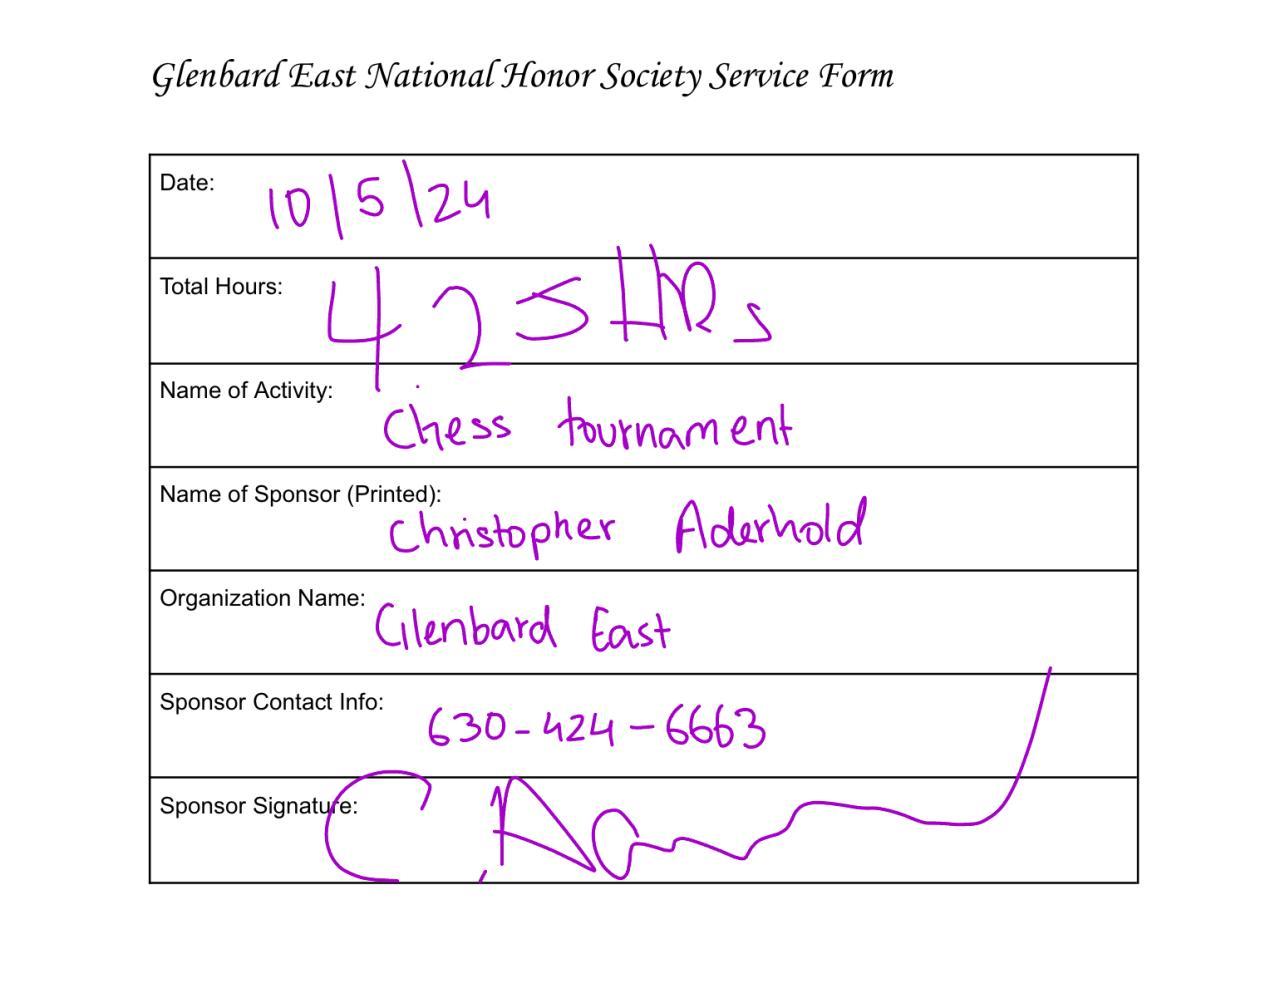 Glenbard East National Honor Society Service Form
Date: 10/5/24
Total Hours: 4 25 HRs
Name of Activity: Chess tournament
Name of Sponsor (Printed): Christopher Aderhold
Organization Name: Glenbard East
Sponsor Contact Info: 630-424-6663
Sponsor Signature: